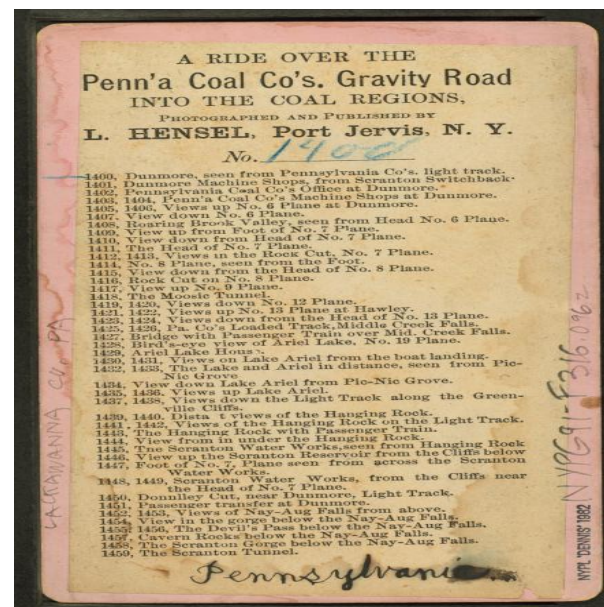 A RIDE OVER THE
Penn'a Coal Co's. Gravity Road
INTO THE COAL REGIONS,
PHOTOGRAPHED AND PUBLISHED BY
L. HENSEL, Port Jervis, N. Y.
No. 1400
1400, Dunmore, seen from Pennsylvania Co's. light track.
1401, Dunmore Machine Shops, from Scranton Switchback.
1402, Pennsylvania Coal Co's Office at Dunmore.
1403, 1404, Penn'a Coal Co's Machine Shops at Dunmore.
1405, 1406, Views up No. 6 Plane at Dunmore.
1407, View down No. 6 Plane.
1408, Roaring Brook Valley, seen from Head No. 6 Plane.
1409, View up from Foot of No. 7 Plane.
1410, View down from Head of No. 7 Plane.
1411, The Head of No. 7 Plane.
1412, 1413, Views in the Rock Cut, No. 7 Plane.
1414, No. 8 Plane, seen from the Foot.
1415, View down from the Head of No. 8 Plane.
1416, Rock Cut on No. 8 Plane.
1417, View up No. 9 Plane.
1418, The Moosic Tunnel.
1419, 1420, Views down No. 12 Plane.
1421, 1422, Views up No. 13 Plane at Hawley.
1423, 1424, Views down from the Head of No. 13 Plane.
1425, 1426, Pa. Co's Loaded Track, Middle Creek Falls.
1427, Bridge with Passenger Train over Mid. Creek Falls.
1428, Bird's-eye view of Ariel Lake, No. 19 Plane.
1429, Ariel Lake House.
1430, 1431, Views on Lake Ariel from the boat landing.
1432, 1433, The Lake and Ariel in distance, seen from Pic-
Nic Grove
1434, View down Lake Ariel from Pic-Nic Grove.
1435, 1436, Views up Lake Ariel.
1437, 1438, Views down the Light Track along the Green-
ville Cliffs.
1439, 1440, Dista t views of the Hanging Rock.
1441, 1442, Views of the Hanging Rock on the Light Track.
1443, The Hanging Rock with Passenger Train.
1444, View from in under the Hanging Rock.
1445, Tne Scranton Water Works, seen from Hanging Rock
1446, View up the Scranton Reservoir from the Cliffs below
1447, Foot of No. 7, Plane seen from across the Scranton
Water Works.
1448, 1449, Scranton Water Works, from the Cliffs near
the Head of No. 7 Plane.
1450, Donnlley Cut, near Dunmore, Light Track.
1451, Passenger transfer at Dunmore.
1452, 1453, Views of Nay-Aug Falls from above.
1454, View in the gorge below the Nay-Aug Falls.
1455, 1456, The Devil's Pass below the Nay-Aug Falls.
1457, Cavern Rocks below the Nay-Aug Falls.
1458, The Scranton Gorge below the Nay-Aug Falls.
1459, The Scranton Tunnel.
Pennsylvania
LACKAWANNA CO, PA
NYPG91-F316.096z
NYPL 'DENNIS' 1982